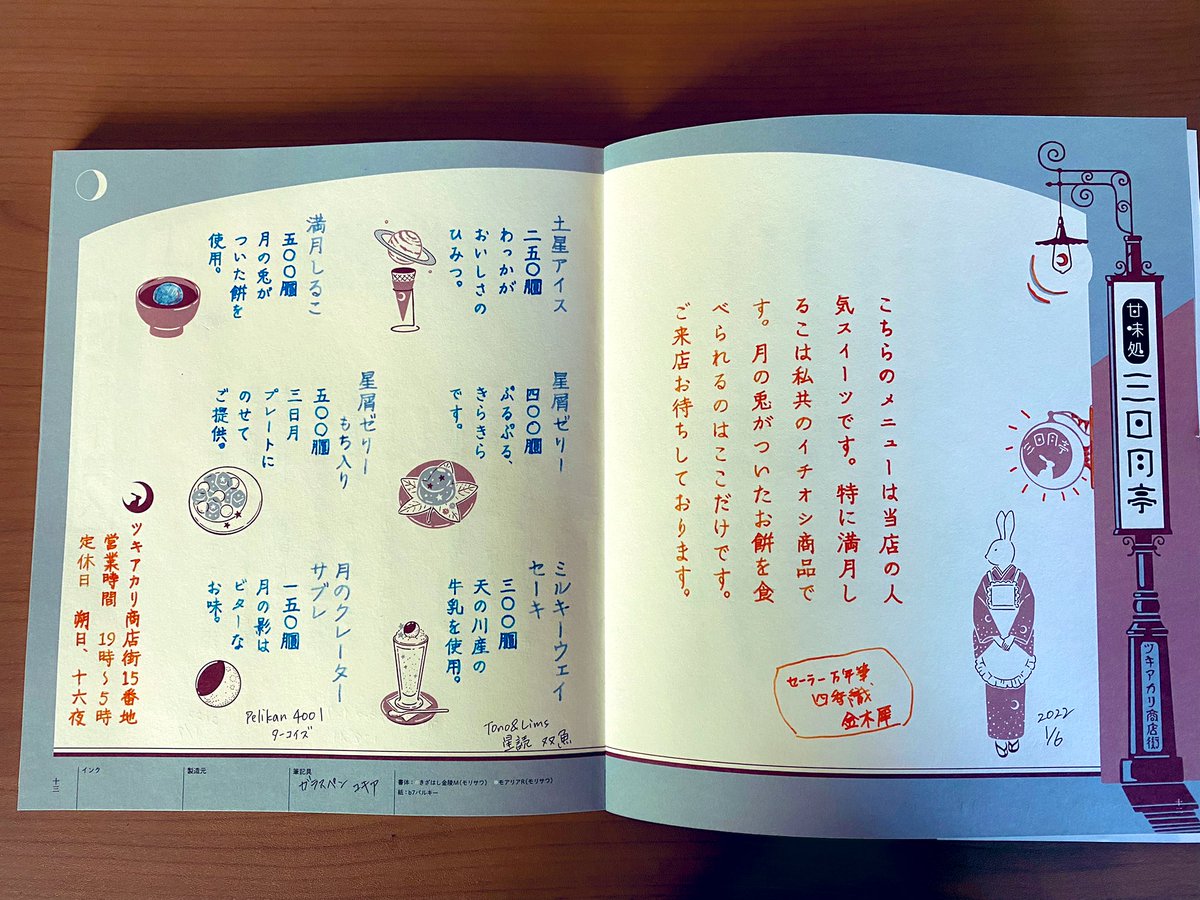 甘味処
三日月亭
ツキアカリ商店街
三日月亭
こちらのメニューは当店の人
気スイーツです。特に満月し
るこは私共のイチオシ商品で
す。月の兎がついたお餅を食
べられるのはここだけです。
ご来店お待ちしております。
セーラー万年筆
四季織
金木犀
2022
1/6
十二
土星アイス
二五〇
わっかが
おいしさの
ひみつ。
満月しるこ
五〇〇
月の兎が
ついた餅を
使用。
星屑ゼリー
四〇〇
ぷるぷる、
きらきら
です。
星屑ゼリー
もち入り
五〇〇
三日月
プレートに
のせて
ご提供。
ミルキーウェイ
セーキ
三〇〇
天の川産の
牛乳を使用。
月のクレーター
サブレ
一五〇
月の影は
ビターな
お味。
ツキアカリ商店街15番地
営業時間 19時〜5時
定休日 朔日、十六夜
Pelikan 4001
ターコイズ
Tono&Lims
星読 双魚
インク
製造元
筆記具
ガラスペン ユキア
書体:きざはし金陵M(モリサワ) モアリアR(モリサワ)
紙:b7バルキー
十三